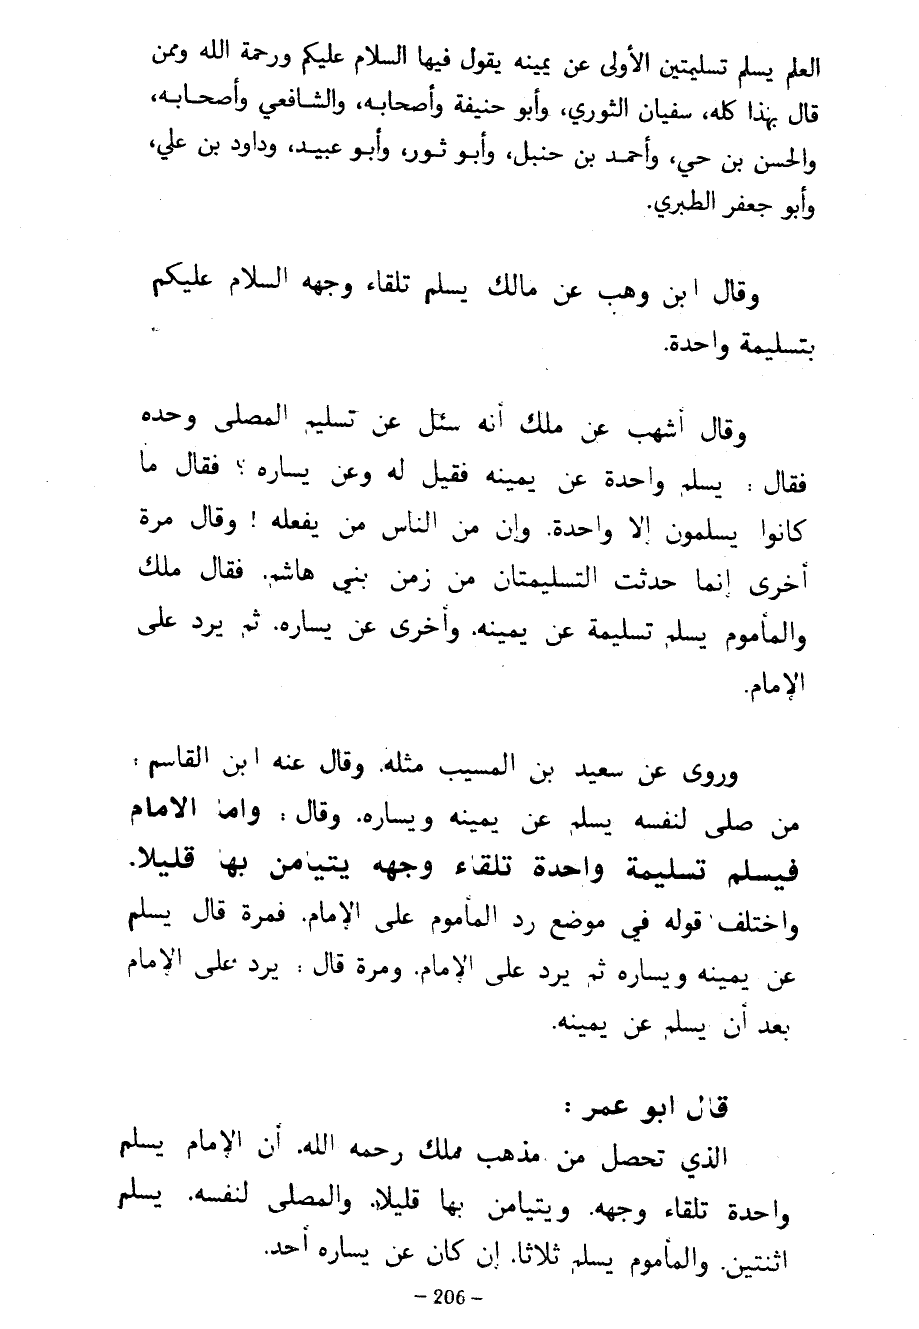 العلم يسلم تسليمتين الأولى عن يمينه يقول فيها السلام عليكم ورحمة الله وممن
قال بهذا كله، سفيان الثوري، وأبو حنيفة وأصحابه، والشافعي وأصحابه،
والحسن بن حي، وأحمد بن حنبل، وأبو ثور، وأبو عبيد، وداود بن علي،
وأبو جعفر الطبري.
وقال ابن وهب عن مالك يسلم تلقاء وجهه السلام عليكم
بتسليمة واحدة.
وقال أشهب عن ملك أنه سئل عن تسليم المصلى وحده
فقال : يسلم واحدة عن يمينه فقيل له وعن يساره ؟ فقال ما
كانوا يسلمون إلا واحدة. وإن من الناس من يفعله ! وقال مرة
أخرى إنما حدثت التسليمتان من زمن بني هاشم. فقال ملك
والمأموم يسلم تسليمة عن يمينه. وأخرى عن يساره. ثم يرد على
الإمام.
وروى عن سعيد بن المسيب مثله. وقال عنه ابن القاسم :
من صلى لنفسه يسلم عن يمينه ويساره. وقال : واما الامام
فيسلم تسليمة واحدة تلقاء وجهه يتيامن بها قليلا.
واختلف قوله في موضع رد المأموم على الإمام. فمرة قال يسلم
عن يمينه ويساره ثم يرد على الإمام. ومرة قال : يرد على الإمام
بعد أن يسلم عن يمينه.
قال ابو عمر :
الذي تحصل من مذهب ملك رحمه الله. أن الإمام يسلم
واحدة تلقاء وجهه. ويتيامن بها قليلا. والمصلى لنفسه. يسلم
اثنتين. والمأموم يسلم ثلاثا. إن كان عن يساره أحد.
– 206 –